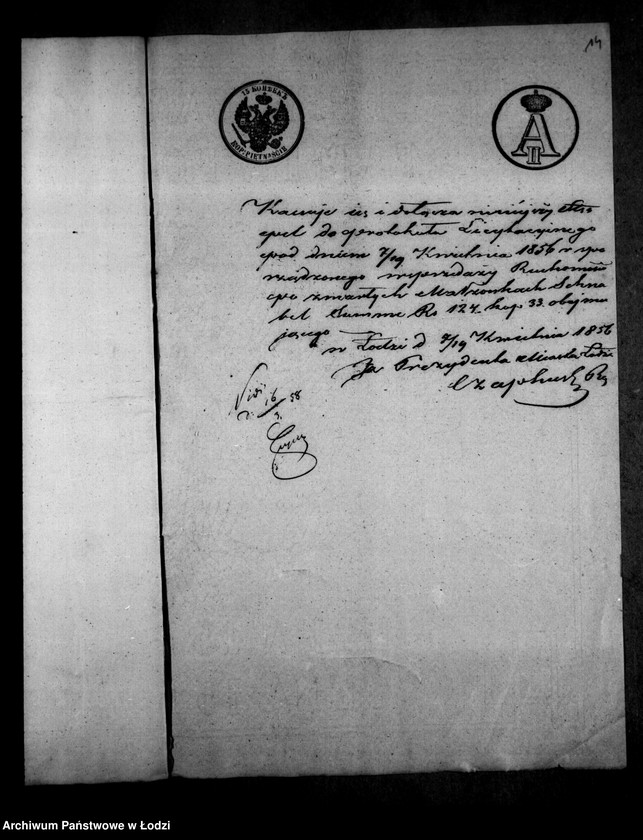 14
15 КОПѢЕКЪ
KOP: PIĘTNAŚCIE
A II
Kasuje się i dołącza niniejszy stem
pel do protokułu Licytacyjnego
pod dniem 7/19 Kwietnia 1856 r. spo
rządzonego wyprzedaży Ruchomości
po zmarłych Małżonkach Schna
bel Summę Rs 127. kop 33. obejmu
jącego
w Łodzi d 7/19 Kwietnia 1856
Za Prezydenta Miasta Łodzi
Vidi
16 58
Archiwum Państwowe w Łodzi